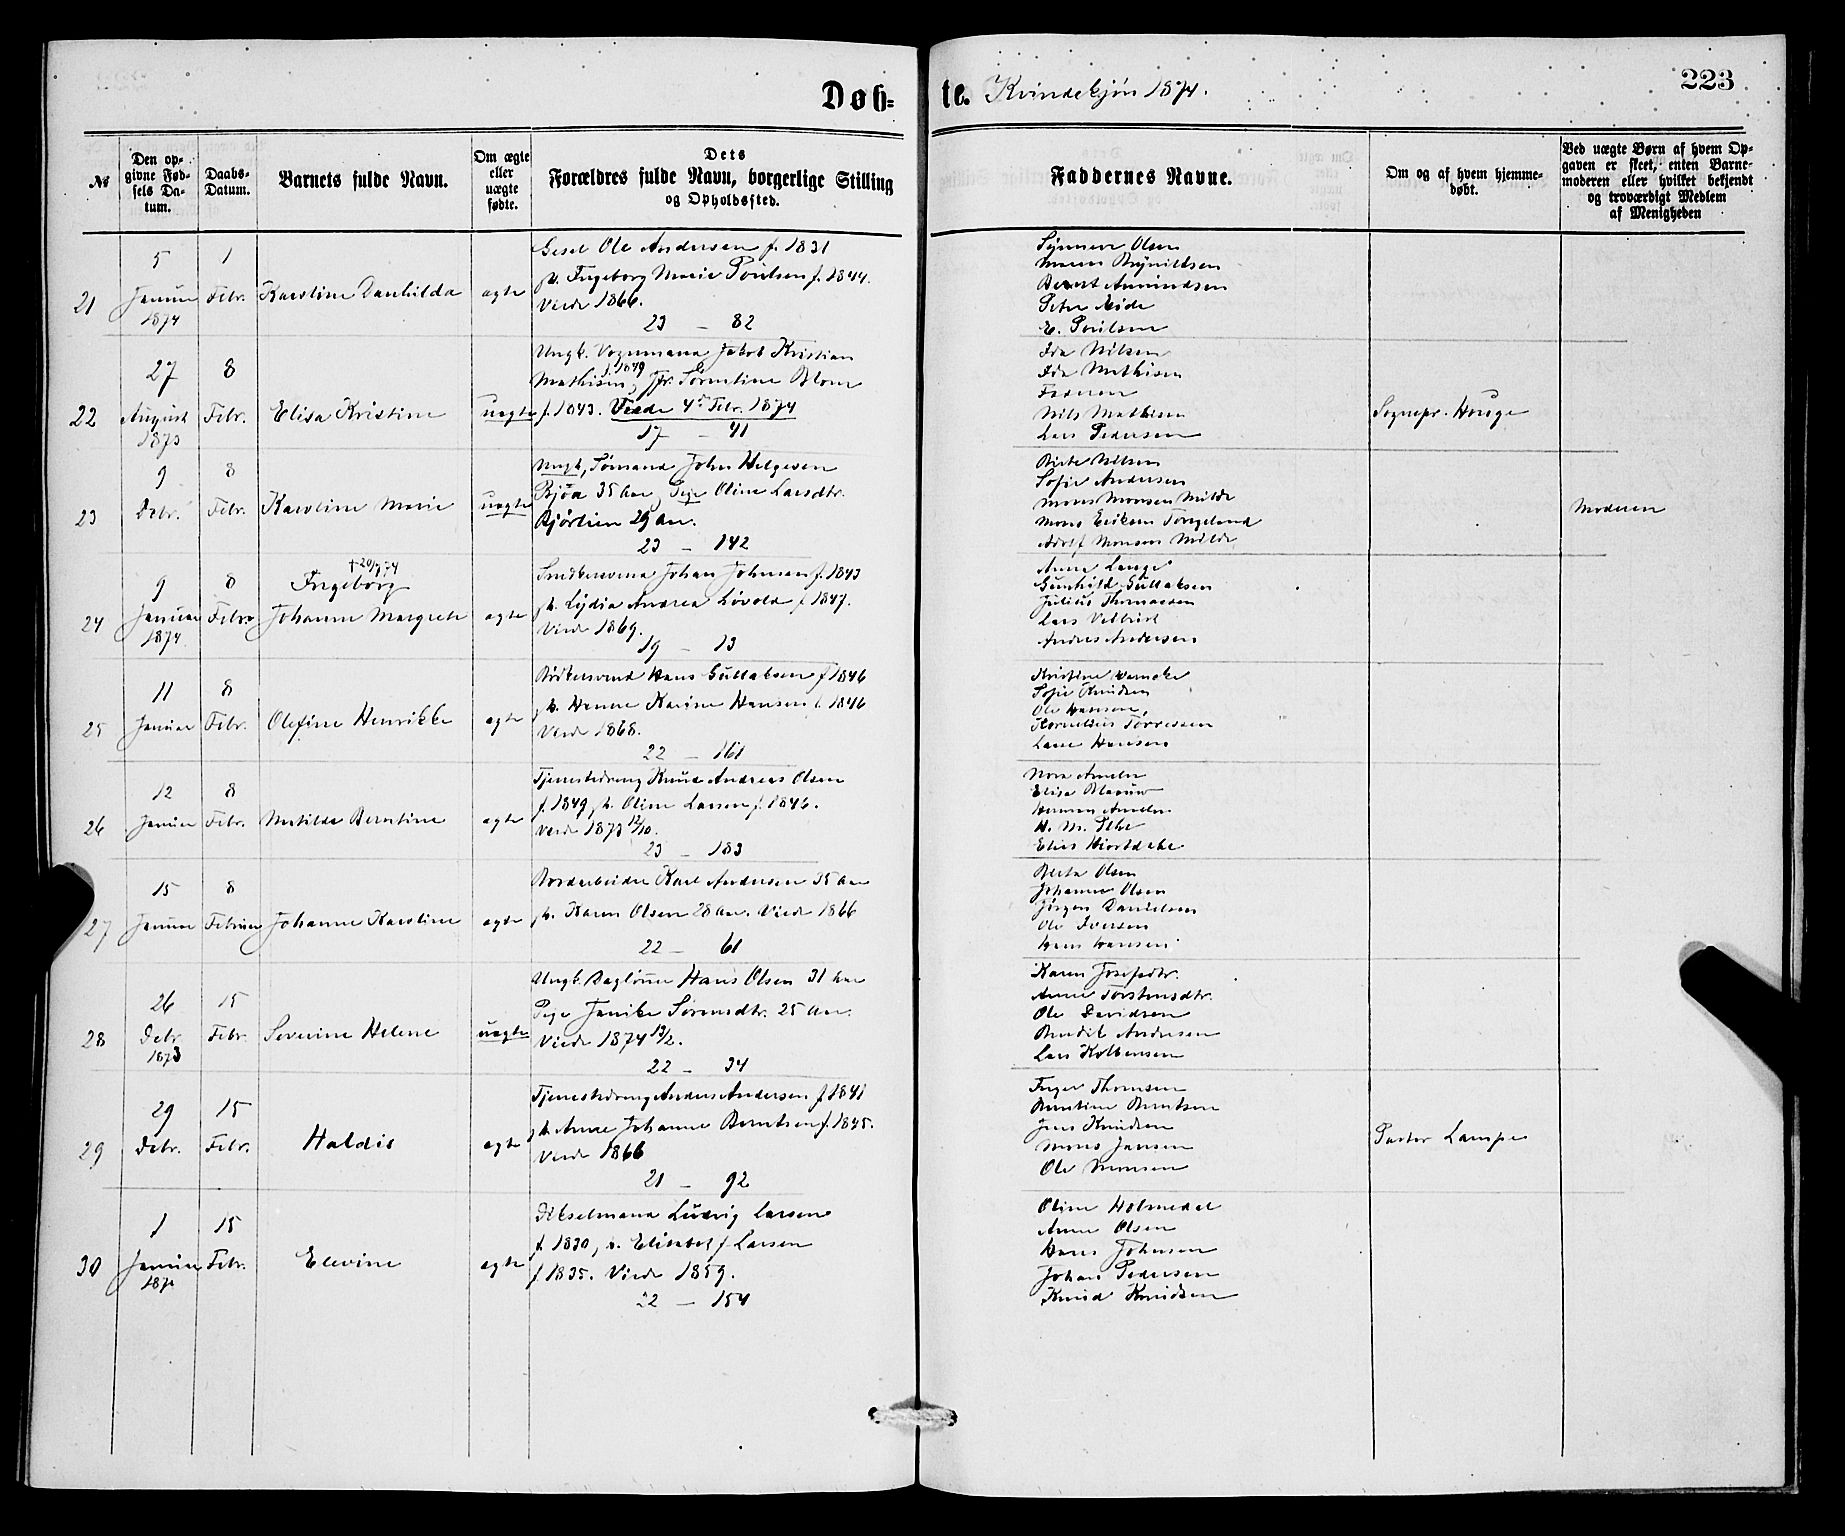 Døb=
te. Kvindekjön 1874.
223
№
Den op-
givne Fød-
sels Da-
tum.
Daabs-
Datum.
Barnets fulde Navn.
Om ægte
eller
uægte
fødte.
Dets
Forældres fulde Navn, borgerlige Stilling
og Opholdssted.
Faddernes Navne.
Om og af hvem hjemme-
døbt.
Ved uægte Børn af hvem Op-
gaven er skeet, enten Barne-
moderen eller hvilket bekjendt
og troværdigt Medlem
af Menigheden
21
5
Januar
1874
1
Febr.
Karoline Danhilda
ægte
Gesel Ole Andersen f. 1831
h. Ingeborg Marie Poulsen f. 1844.
Viede 1866.
23 - 82
Synneve Olsen
Brynildsen
Bernt Amundsen
Peter Eide
E. Poulsen
22
27
August
1873
8
Febr.
Elisa Kristine
uægte
Ungk. Vognmand Jakob Kristian
Mathisen f. 1849, Jfr. Sørentine Blom
f. 1843. Viede 4de Febr. 1874
17 - 41
Ida Nilsen
Ida Mathisen
Faderen
Nils Mathisen
Lars Pedersen
Sognepr. Houge
23
9
Debr.
8
Febr.
Karoline Marie
uægte
Ungk, Sømand John Helgesen
Bjøa 35 Aar, Pige Oline Larsdtr.
Bjørlien 29 Aar.
23 - 142
Birte Nilsen
Sofie Andersen
Mons Monsen Milde
Mons Eriksen
Adolf Monsen Milde
Moderen
24
9
Januar
1874
8
Febr.
† 20/7 74
Ingeborg
Johanne Margrete
ægte
Snedkersvend Johan Johnsen f. 1843
h. Lydia Andrea Løvold f. 1847.
Viede 1869.
19 - 13
Anna Lange
Gunhild Gullaksen
Julius Thomassen
Lars
Andreas Andersen
25
11
Januar
8
Febr.
Olefine Henrikke
ægte
Bødkersvend Hans Gullaksen f 1846
h. Hanne Karine Hansen f. 1846
Viede 1868.
22 - 161
Kristine
Sofie Knudsen
Ole Hansen,
Kornelius Torressen
Lasse Hansen
26
12
Januar
8
Febr.
Matilde Berntine
ægte
Tjenestedreng Knud Andreas Olsen
f. 1849, h. Oline Larsen f. 1846.
Viede 1873 12/10.
23 - 183
Nora Ameln
Elisa Blaauw
Herman Ameln
H. M.
Elias
27
15
Januar
8
Februar
Johanne Karoline
ægte
Bordarbeider Karl Andersen 35 Aar
h. Karen Olsen 28 Aar. Viede 1866
22 - 61
Berta Olsen
Johanne Olsen
Jørgen Danielsen
Ole Iversen
Hans Hansen
28
26
Debr
1873
15
Febr.
Severine Helene
uægte
Ungk. Daglønner Hans Olsen 31 Aar
Pige Janike Sørensdtr. 25 Aar.
Viede 1874 13/2.
22 - 34
Karen Josefsdtr.
Anne Torstensdtr.
Ole Davidsen
Bendik Andersen
Lars Kolbensen
29
29
Debr.
15
Febr.
Haldis
ægte
Tjenestedreng Anders Andersen f. 1841
h. Anne Johanne Berntsen f. 1845.
Viede 1866
21 - 92
Inger Thomsen
Berntine Berntsen
Jens Knudsen
Mons Jansen
Ole Monsen
Pastor Lampe
30
1
Januar
1874
15
Febr.
Elevine
ægte
Ludvig Larsen
f. 1830, h. Elisabet f. Larsen
f 1835. Viede 1859.
22 - 154
Oline Holmedal
Anne Olsen
Hans Johnsen
Johan Pedersen
Knud Knudsen